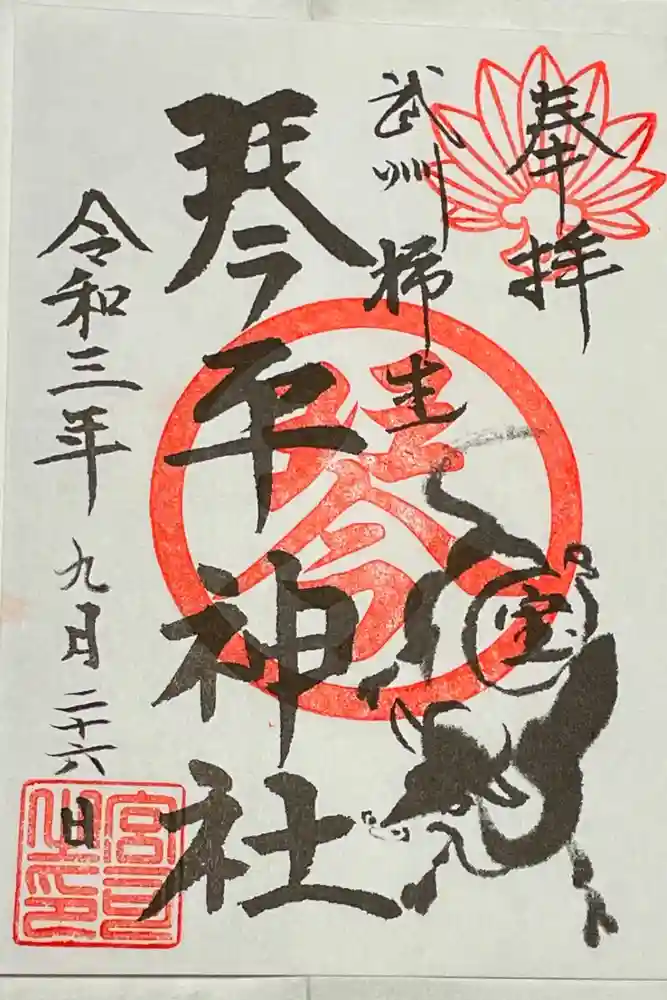 奉拝
武州 柿生
琴平神社
令和三年 九月二十六日
琴
宝
宮司之印